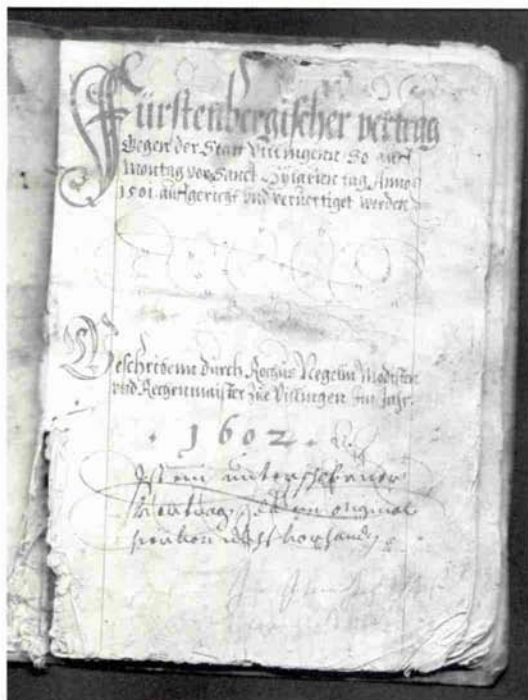 Fürstenbergischer vertrag
Gegen der Statt Villingenn So auff
Montag vor Sanct Hylarien tag Anno
1501 auffgericht und veruertiget worden
Beschribenn durch Rochus Negelin Modisten
vnd Rechenmaister zue Villingen Im Jahr.
1602
Ist ein unterschribener
Vertrag, original
nicht vorhanden